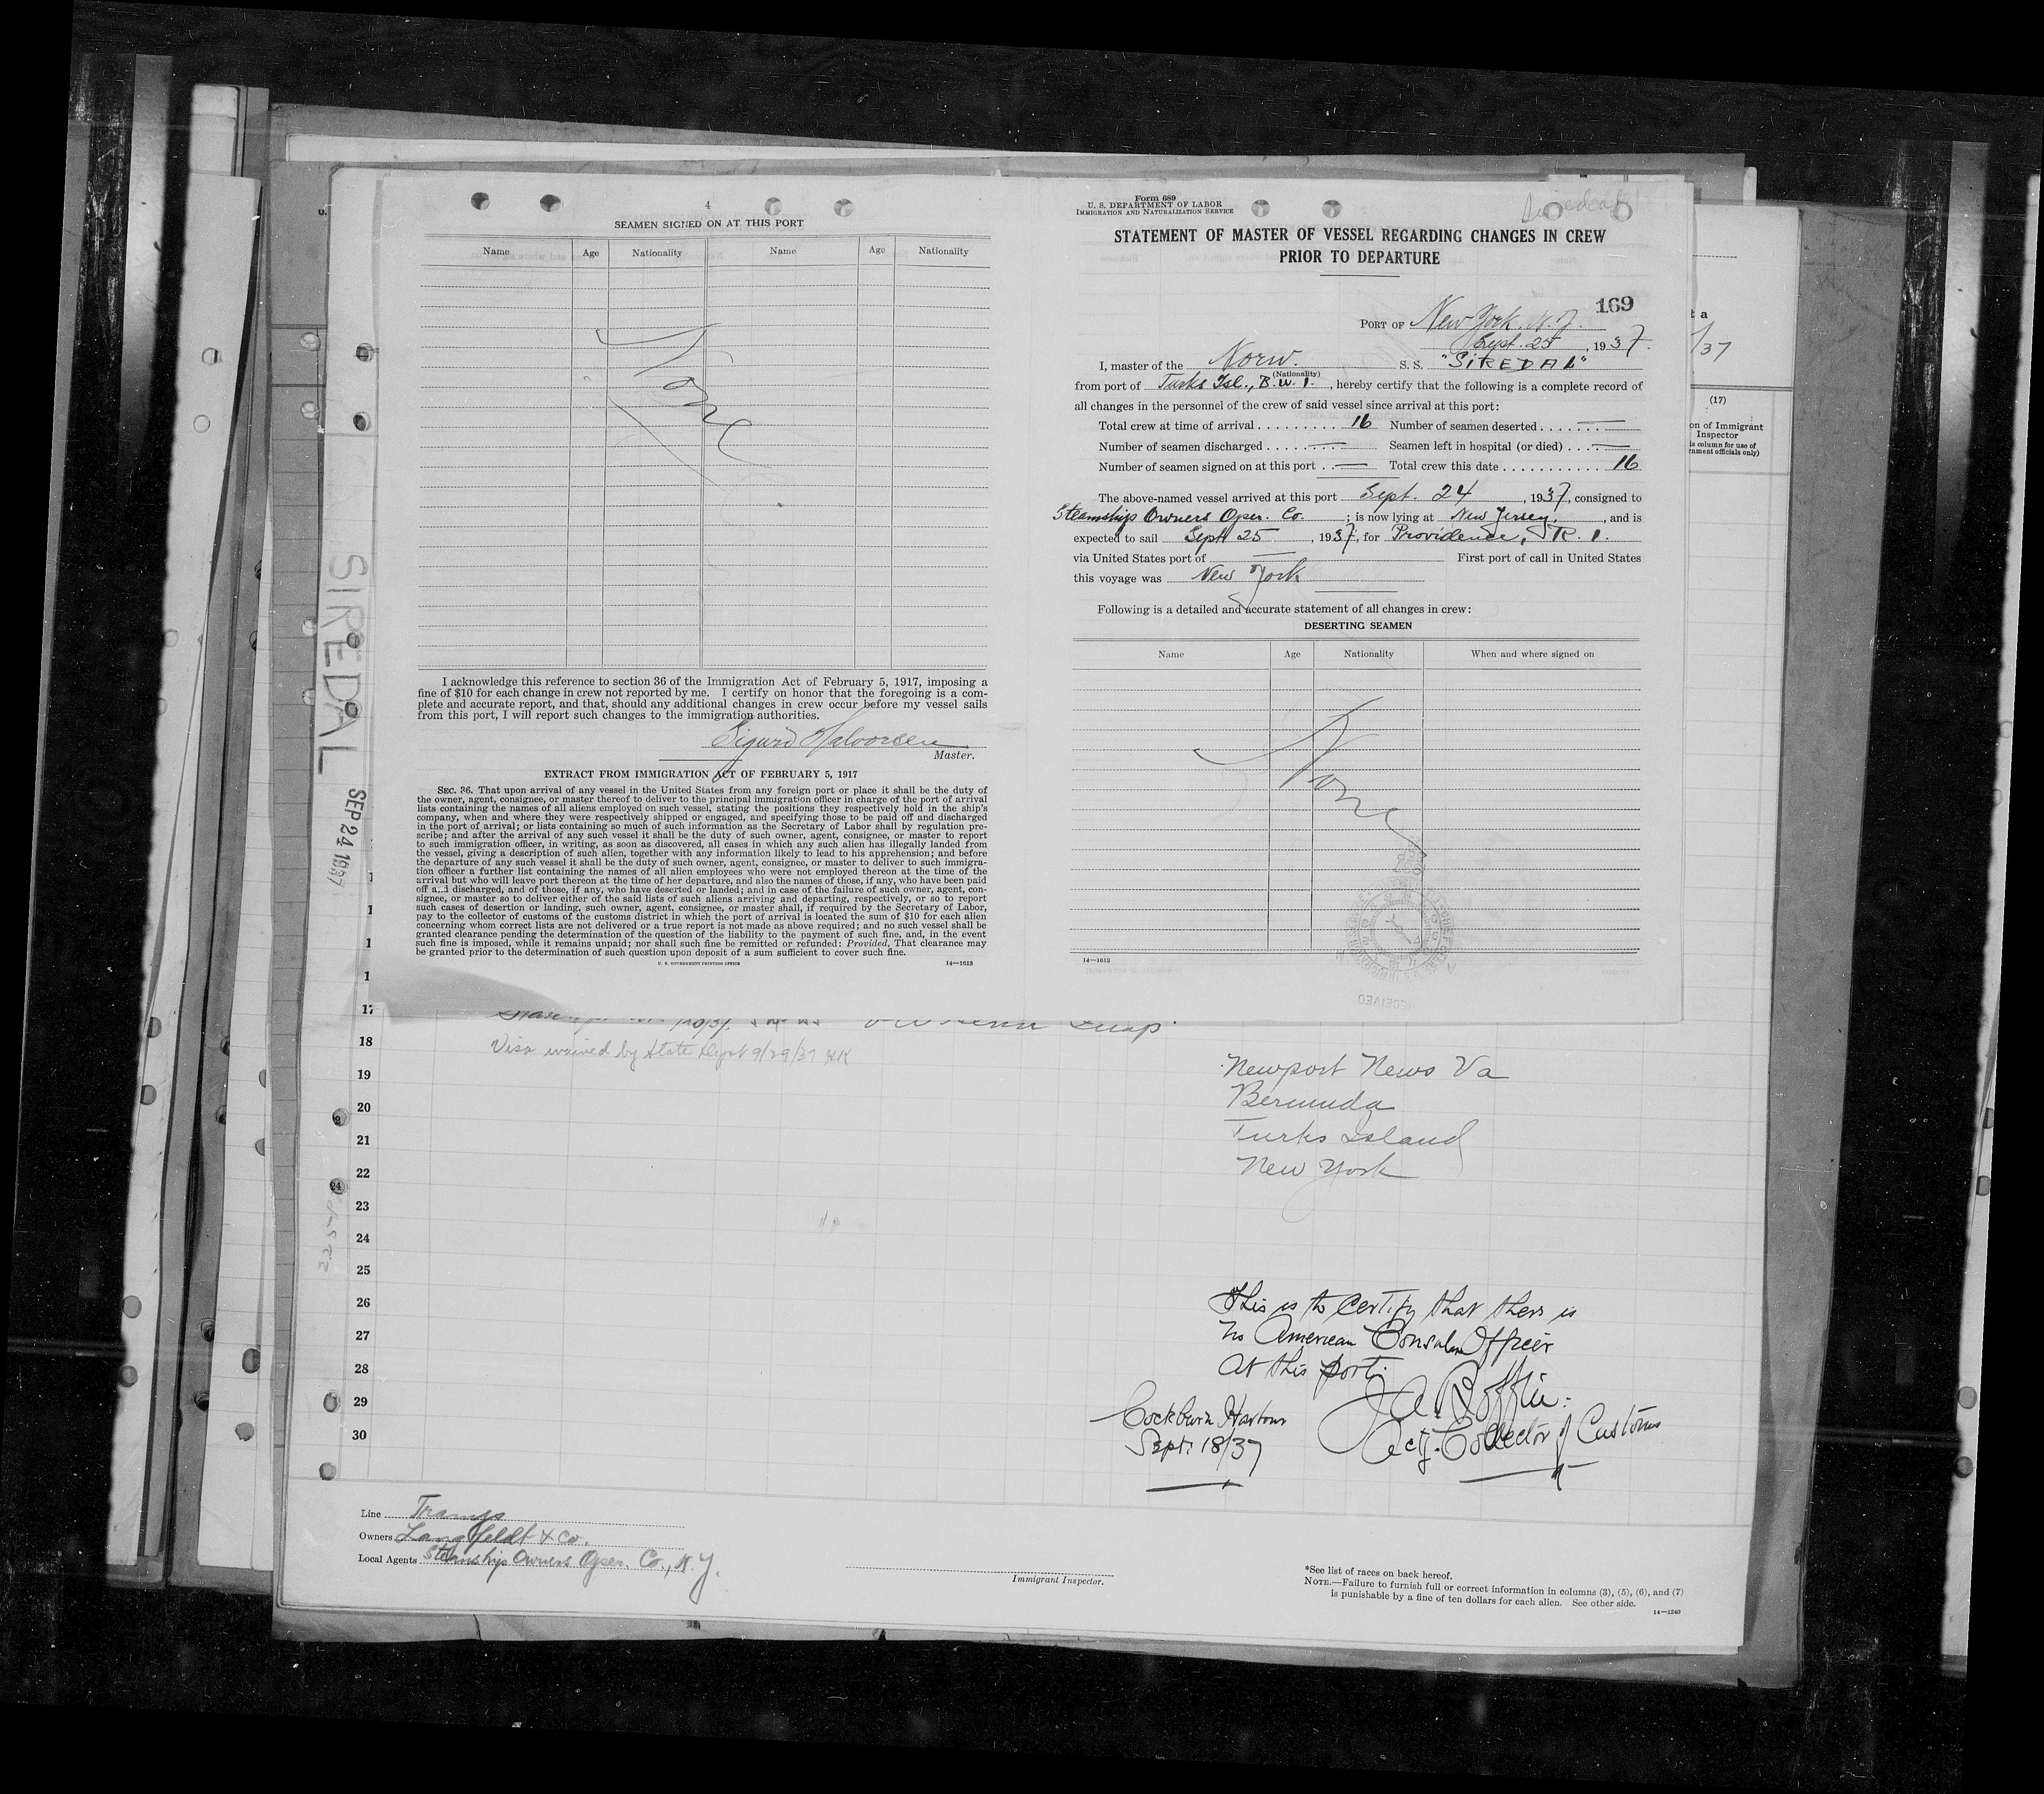 4
SEAMEN SIGNED ON AT THIS PORT
Name Age Nationality Name Age Nationality
None
I acknowledge this reference to section 36 of the Immigration Act of February 5, 1917, imposing a
fine of $10 for each change in crew not reported by me. I certify on honor that the foregoing is a com-
plete and accurate report, and that, should any additional changes in crew occur before my vessel sails
from this port, I will report such changes to the immigration authorities.
Sigurd Halvorsen
Master.
EXTRACT FROM IMMIGRATION ACT OF FEBRUARY 5, 1917
SEC. 36. That upon arrival of any vessel in the United States from any foreign port or place it shall be the duty of
the owner, agent, consignee, or master thereof to deliver to the principal immigration officer in charge of the port of arrival
lists containing the names of all aliens employed on such vessel, stating the positions they respectively hold in the ship's
company, when and where they were respectively shipped or engaged, and specifying those to be paid off and discharged
in the port of arrival; or lists containing so much of such information as the Secretary of Labor shall by regulation pre-
scribe; and after the arrival of any such vessel it shall be the duty of such owner, agent, consignee, or master to report
to such immigration officer, in writing, as soon as discovered, all cases in which any such alien has illegally landed from
the vessel, giving a description of such alien, together with any information likely to lead to his apprehension; and before
the departure of any such vessel it shall be the duty of such owner, agent, consignee, or master to deliver to such immigra-
tion officer a further list containing the names of all alien employees who were not employed thereon at the time of the
arrival but who will leave port thereon at the time of her departure, and also the names of those, if any, who have been paid
off and discharged, and of those, if any, who have deserted or landed; and in case of the failure of such owner, agent, con-
signee, or master so to deliver either of the said lists of such aliens arriving and departing, respectively, or so to report
such cases of desertion or landing, such owner, agent, consignee, or master shall, if required by the Secretary of Labor,
pay to the collector of customs of the customs district in which the port of arrival is located the sum of $10 for each alien
concerning whom correct lists are not delivered or a true report is not made as above required; and no such vessel shall be
granted clearance pending the determination of the question of the liability to the payment of such fine, and, in the event
such fine is imposed, while it remains unpaid; nor shall such fine be remitted or refunded: Provided, That clearance may
be granted prior to the determination of such question upon deposit of a sum sufficient to cover such fine.
U. S. GOVERNMENT PRINTING OFFICE 14—1613
Form 689
U. S. DEPARTMENT OF LABOR
IMMIGRATION AND NATURALIZATION SERVICE
STATEMENT OF MASTER OF VESSEL REGARDING CHANGES IN CREW
PRIOR TO DEPARTURE
169
PORT OF New York. N.Y.
Sept. 25, 1937.
I, master of the Norw. S. S. "SIREDAL"
(Nationality)
from port of Turks Isl., B.W.I., hereby certify that the following is a complete record of
all changes in the personnel of the crew of said vessel since arrival at this port:
Total crew at time of arrival . . . . . . . . . 16 Number of seamen deserted . . . . . . —
Number of seamen discharged . . . . . . . — Seamen left in hospital (or died) . . . . —
Number of seamen signed on at this port . . — Total crew this date . . . . . . . . . . . 16
The above-named vessel arrived at this port Sept. 24, 1937, consigned to
Steamship Owners Oper. Co. ; is now lying at New Jersey, and is
expected to sail Sept 25, 1937, for Providence, R. I.
via United States port of — First port of call in United States
this voyage was New York
Following is a detailed and accurate statement of all changes in crew:
DESERTING SEAMEN
Name Age Nationality When and where signed on
None
14—1613
RECEIVED
SIREDAL
SEP 24 1937
(17)
on of Immigrant
Inspector
is column for use of
rnment officials only)
17
18 Visa waived by State Dept 9/29/37 HK
19
20
21
22
23
24
25
26
27
28
29
30
Newport News Va
Bermuda
Turks Island
New York
This is to Certify that there is
no American Consular Officer
at this port.
Cockburn Harbour
Sept. 18/37
Actg. Collector of Customs
Line Tramp
Owners Langfeldt & Co.
Local Agents Steamship Owners Oper. Co., N.Y.
Immigrant Inspector.
*See list of races on back hereof.
NOTE.—Failure to furnish full or correct information in columns (3), (5), (6), and (7)
is punishable by a fine of ten dollars for each alien. See other side.
14—1240